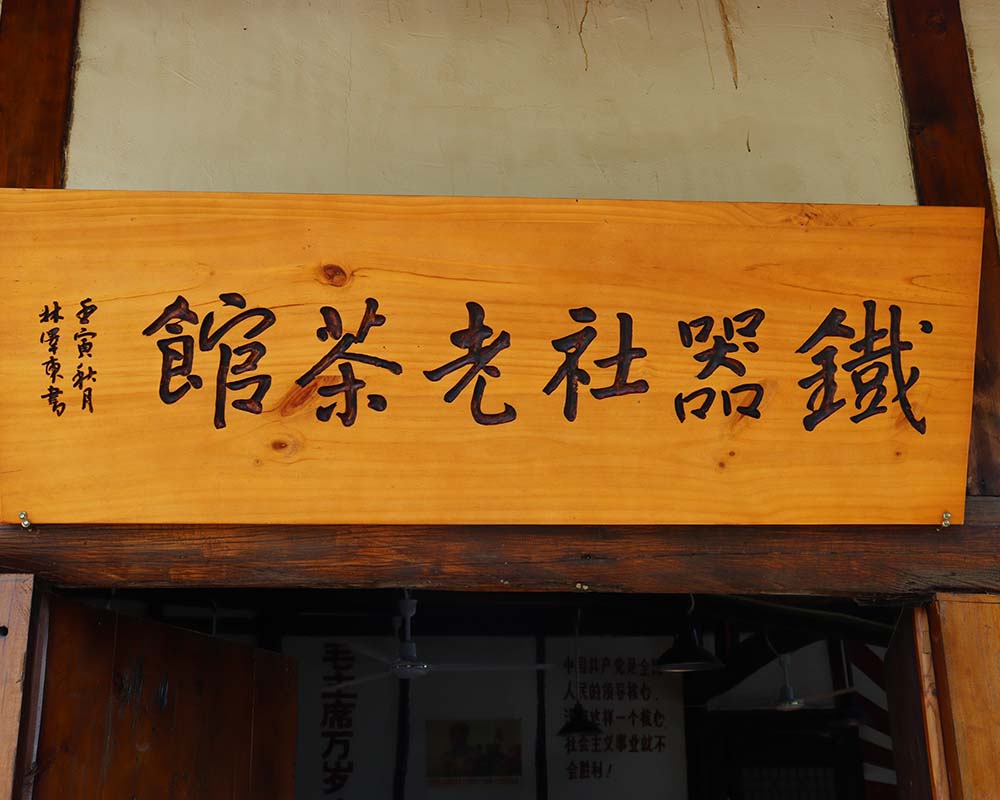 鐵器社老茶館
壬寅秋月
林澤東書
毛主席万岁
中国共产党是全国
人民的领导核心.
没有这样一个核心
社会主义事业就不
会胜利!